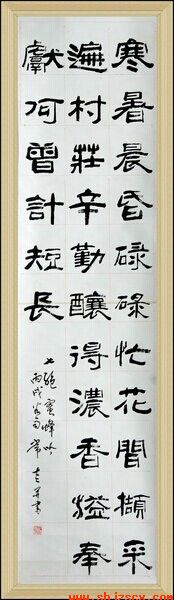 寒暑晨昏碌碌忙花間擷采
遍村莊辛勤釀得濃香溢奉
獻何曾計短長
七絕蜜蜂吟
丙戌
書